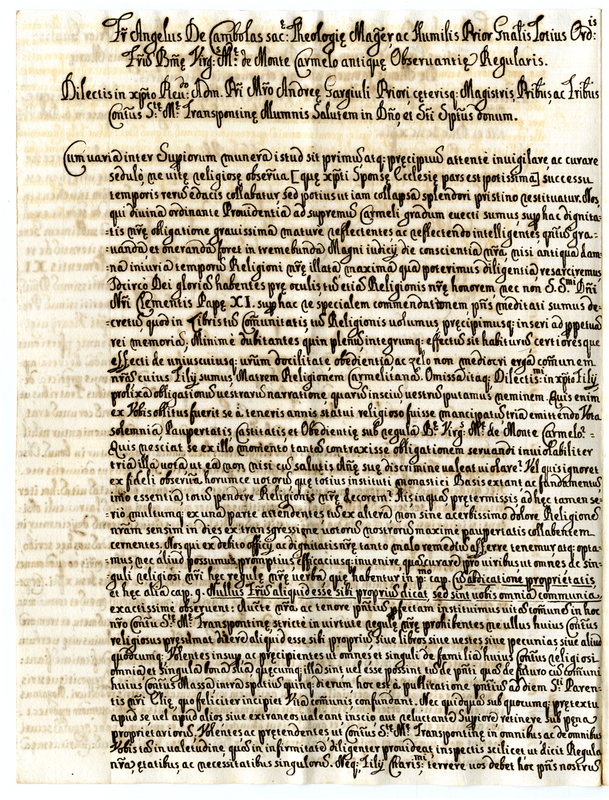 Fr Angelus De Cambolas sac: Theologię Magēr, ac Humilis Prior Gnālis Totius Ordis:
Frūm Bmę Virg: Mę de Monte Carmelo antiquę Observantię Regularis.
Dilectis in xpīto Reudo Adm. Pri Mro Andreę Gargiuli Priori, cęterisq; Magistris, Pribus, ac Frībus
Contūs Stę Mę Transpontinę Alumnis Salutem in Dno et Sti Spītus donum.
Cum varia inter Supiorum munera istud sit primū atq; pręcipuū attente invigilare, ac curare
sedulo ne vitę religiosę observa [quę xpīti Sponsę Ecclesię pars est potissima] successu
temporis rerū edacis collabatur, sed potius ut iam collapsa splendori pristino restituatur. Nos,
qui divina ordinante Providentia ad supremū Carmeli gradum evecti sumus, sup hac dignita-
tis nrę obligatione gravissima mature reflectentes, ac reflectendo intelligentes quā gra-
vanda et oneranda foret in tremebunda Magni iudicij die conscientia nra, nisi antiqua dam-
na iniuria temporū Religioni nrę illata maxima qua poterimus diligentia resarciremus
Idcirco Dei gloria habentes prę oculis tū etiā Religionis nrę honorem, nec non S. Smi Dni
Nri Clementis Papę XI. sup hac re specialem commendationem, pñis meditati sumus de-
cretū quod in Libris Cōmunitatis uę Religionis volumus pręcipimusq; inseri ad ppetuā
rei memoriā. Minime dubitantes quin plenū integrumq; effectū sit habiturū certioresque
effecti de uniuscuiusq; urūm docilitate, obedientia, ac zelo non mediocri erga cōmunem
nram cuius Filij sumus Matrem Religionem Carmelitanā. Omissa itaq; Dilectismi in xpīto Filij
prolixa obligationū vestrarū narratione, quarū insciū vestrū putamus neminem. Quis enim
ex Vobis oblitus fuerit se a teneris annis statui religioso fuisse mancipatū tria emittendo Vota
solemnia, Paupertatis Castitatis et Obedientię sub regula Bę Virg: Mę de Monte Carmelo?
Quis nesciat se ex illo momento tantā contraxisse obligationem servandi inviolabiliter
tria illa vota ut ea non nisi cū salutis ānę suę discrimine valeat violare? Vel quis ignoret
ex fideli observa horumce votorū que totius instituti monastici Basis extant ac fundamentū
imo essentia totū pendere Religionis nrę decorem? His inquā pretermissis, ad hęc tamen se-
rio multumq; ex una parte attendentes tū ex altera non sine acerbissimo dolore Religionē
nram sensim in dies ex transgressione votorū nostrorū maxime paupertatis collabentem
cernentes. Nos qui ex debito officij, ac dignitatis nrę tanto malo remediū afferre tenemur atq; opta-
mus nec aliud possumus promptius, efficaciusq; invenire, quā curare pro viribus ut omnes, de sin-
guli religiosi nri hęc regulę nrę verba quę habentur in pmo: cap. de abdicatione proprietatis,
et hęc alia cap. 9. Nullus Frūm aliquid esse sibi propriū dicat, sed sint vobis omnia communia
exactissime observent: Aucte nra, ac tenore pñtium pfectam instituimus vitā cōmunē in hoc
nro Contū Stę Mę Transpontinę, stricte in virtute regulę nrę prohibentes ne ullus huius Contūs
religiosus presūmat dicere aliquid esse sibi propriū sive libros sive vestes sive pecunias, sive aliud
quodcumq; Volentes insup ac pręcipientes ut omnes et singuli de familia huius Contūs religiosi
omnia et singula bona sua quęcumq; illa sint vel esse possint tū de pñti quā de futuro cū cōmuni
huius Contūs Massa intra spatiū quinq; dierum hoc est a publicatione pñtium ad diem Sti Paren-
tis nri Elię quo feliciter incipiet Vita cōmunis confundant. Nec quidquā sub quocumq; prętextu
apud se vel apud alios sive extraneos valeant inscio aut reluctante Supiore retinere sub pena
proprietariorū. Volentes ac pretendentes ut Contūs Stę Mę Transpontinę in omnibus ac de omnibus
Vobis tā in valetudine, quā in infirmitate diligenter provideat inspectis scilicet ut dicit Regula
nra, ętatibus, ac necessitatibus singulorū. Neq; Filij Charismi terrere vos debet hoc pñs nostrū